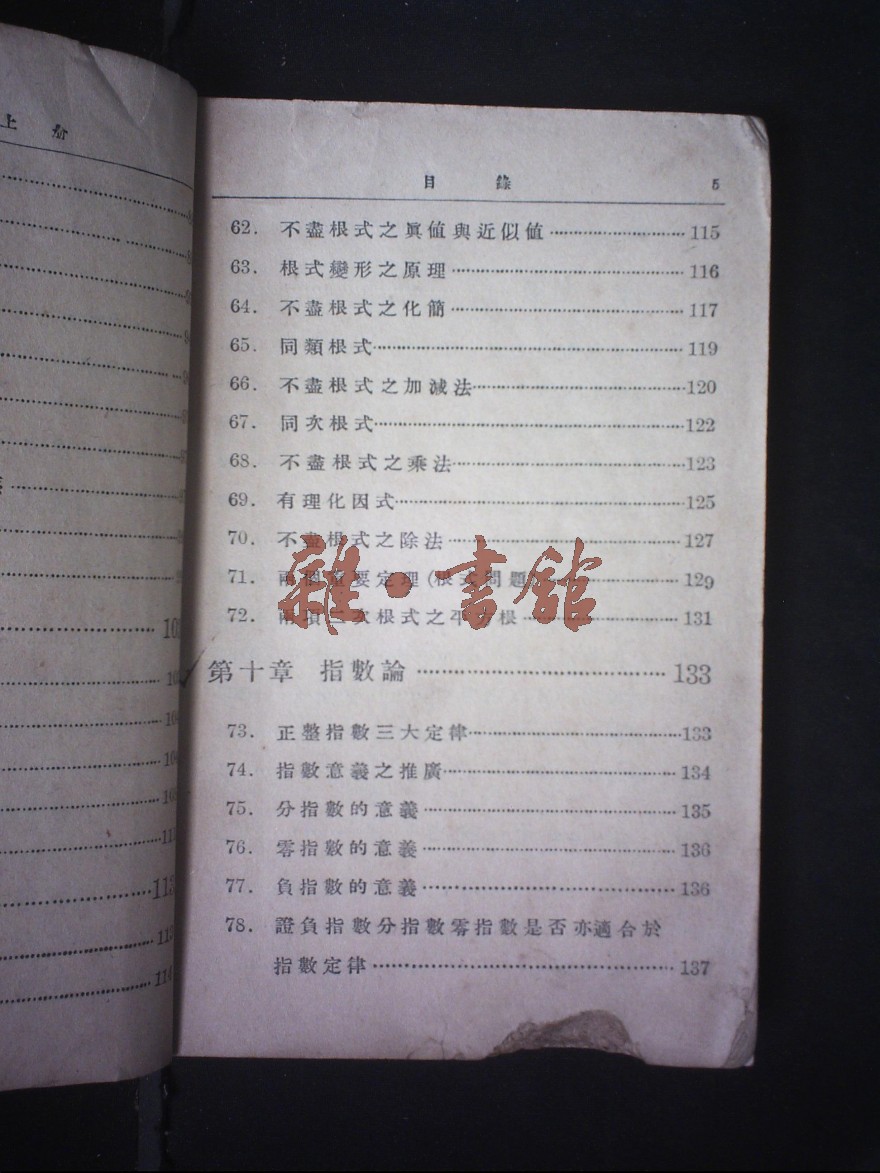 上
目錄 5
62. 不盡根式之眞値與近似値 115
63. 根式變形之原理 116
64. 不盡根式之化簡 117
65. 同類根式 119
66. 不盡根式之加減法 120
67. 同次根式 122
68. 不盡根式之乘法 123
69. 有理化因式 125
70. 不盡根式之除法 127
71. 兩個重要定理(根式問題) 129
72. 兩項二次根式之平方根 131
雜·書館
第十章 指數論 133
73. 正整指數三大定律 133
74. 指數意義之推廣 134
75. 分指數的意義 135
76. 零指數的意義 136
77. 負指數的意義 136
78. 證負指數分指數零指數是否亦適合於
指數定律 137